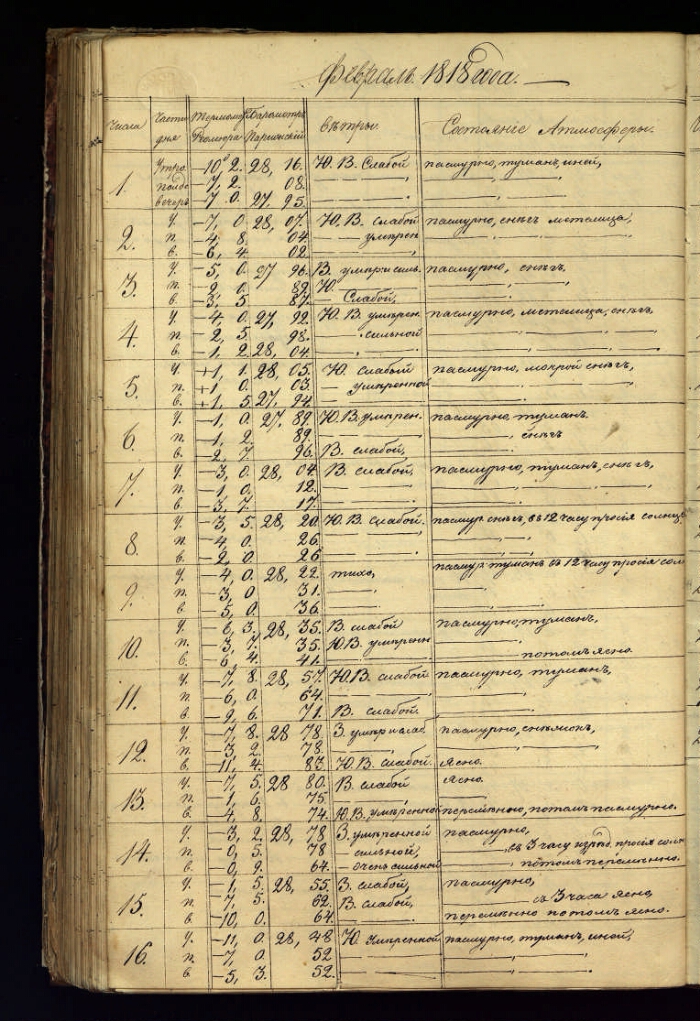 Февраль 1818 года. —
Числа Части дня Термометр Реомюра Барометр Парижский вѣтры. Состоянiе Атмосферы.
1. Утро —10, 2. 28, 16. Ю. В. Слабой пасмурно, туманъ, иней,
полдв —7, 2. 08.
вечеръ —7, 0. 27, 95.
2. У. —7, 0. 28, 07. Ю. В. слабой пасмурно, снѣгъ метелица,
п. —4, 8. 04. — умѣрен
в. —6, 4. 02.
3. У. —5, 0. 27 96. В. умѣр и силь. пасмурно, снѣгъ,
п. —2, 0. 89. Ю.
в. —3, 5. 87. — Слабой,
4. У. —4, 0. 27, 92. Ю. В. умѣрен. пасмурно, метелица, снѣгъ,
п. —2, 5. 98. — сильной
в. —1, 2. 28, 04.
5. У. +1, 1. 28, 05. Ю. слабый пасмурно, мокрой снѣгъ,
п. +1, 0. 03. — умѣренной
в. +1, 5. 27, 94.
6. У. —1, 0. 27, 89. Ю. В. умѣрен. пасмурно, туманъ.
п. —1, 2. 89. — снѣгъ
в. —2, 7. 96. В. слабой,
7. У. —3, 0. 28, 04. В. слабой, пасмурно, туманъ, снѣгъ,
п. —1, 0. 12.
в. —3, 7. 17.
8. У. —3, 5. 28, 20. Ю. В. слабой. пасмур. снѣгъ, въ 12 часу просiя солнц
п. —4, 0. 26.
в. —2, 0. 26
9. У. —4, 0. 28, 22. тихо, пасмур. туманъ въ 12 часу просiя сол
п. —3, 0. 31.
в. —5, 0. 36.
10. У. —6, 3. 28, 35. В. слабой пасмурно, туманъ,
п. —3, 7. 35. Ю.В. умѣренн
в. —6, 4. 41. — потомъ ясно
11. У. —7, 8. 28, 57. Ю.В. слабой пасмурно, туманъ,
п. —6, 0. 64.
в. —9, 6. 71. В. слабой
12. У. —7, 8. 28 78. З. умѣр и слаб пасмурно,
п. —3, 2. 78.
в. —11, 4. 83. Ю. В. слабой. Ясно.
13. У. —7, 5. 28 80. В. слабой Ясно.
п. —1, 6. 75.
в. —4, 8. 74. Ю.В. умѣренной перемѣнно, потомъ пасмурно.
14. У. —3, 2. 28, 78 З. умѣренной пасмурно,
п. —0, 5. 78 — сильный, — съ 3 часу просiя солн
в. —0, 9. 64. — очень сильной — потомъ перемѣнно.
15. У. —1, 5. 28, 55. З. слабой, пасмурно,
п. —7, 5. 62. В. слабой, — съ 3 часа Ясно,
в. —10, 0. 64. — перемѣнно потомъ ясно.
16. У. —11, 0. 28, 48 Ю. Умѣренной пасмурно, туманъ, иней,
п. —7, 0. 52
в. —5, 3. 52.